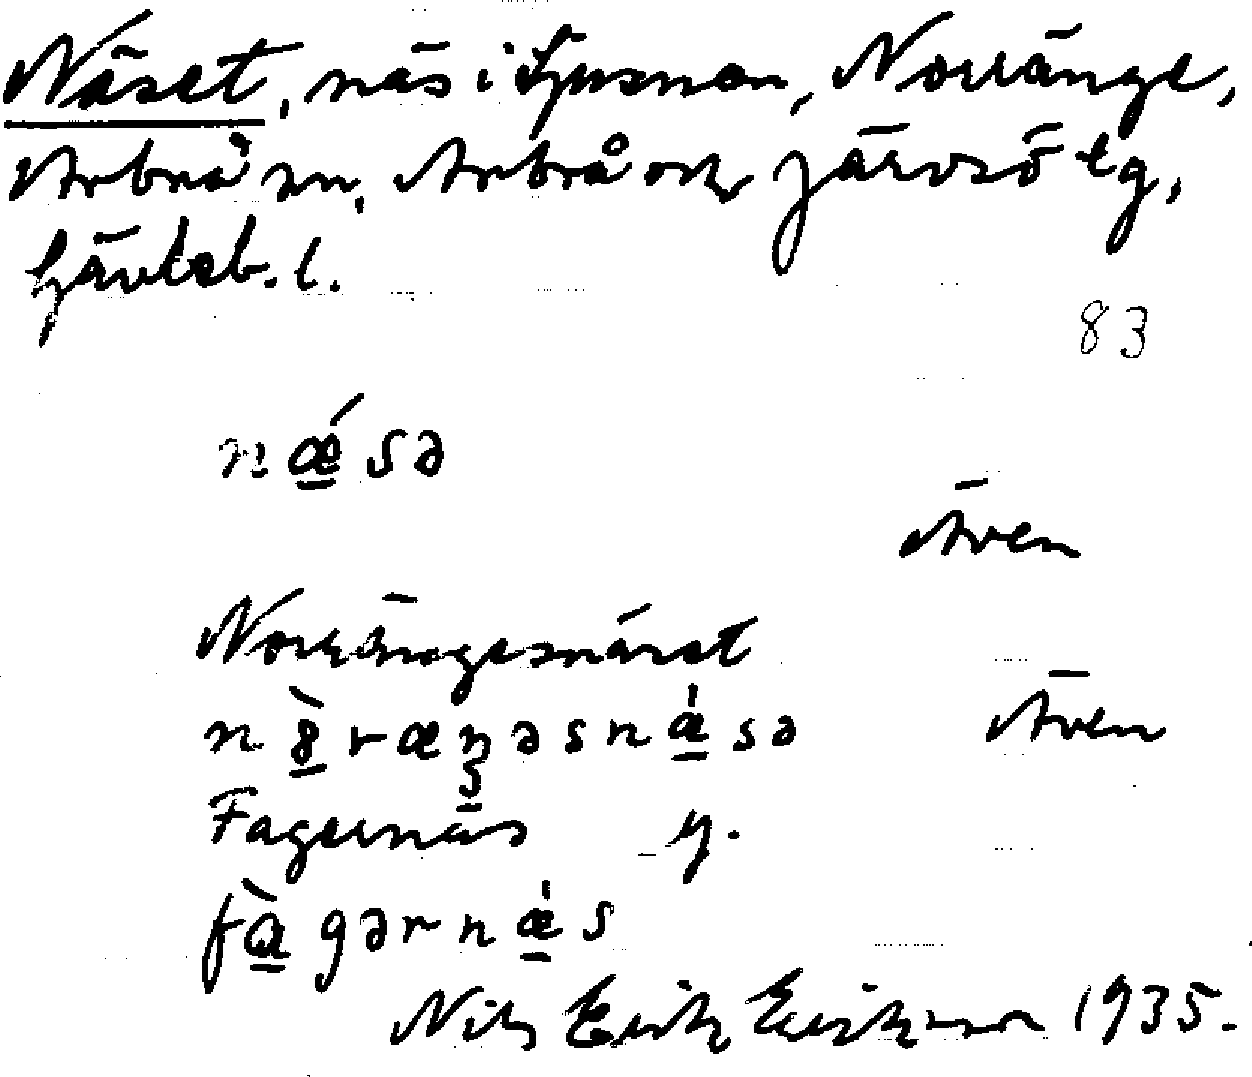 Näset, näs i Ljusnan, Norränge,
Arbrå sn, Arbrå och Järvsö tg,
Gävleb. l.
83
nǽ̲sə
Även
Norrängesnäset
Även
Fagernäs
fɑ̲̀gərnæ̲̍s
Nils Erik Eriksson 1935.